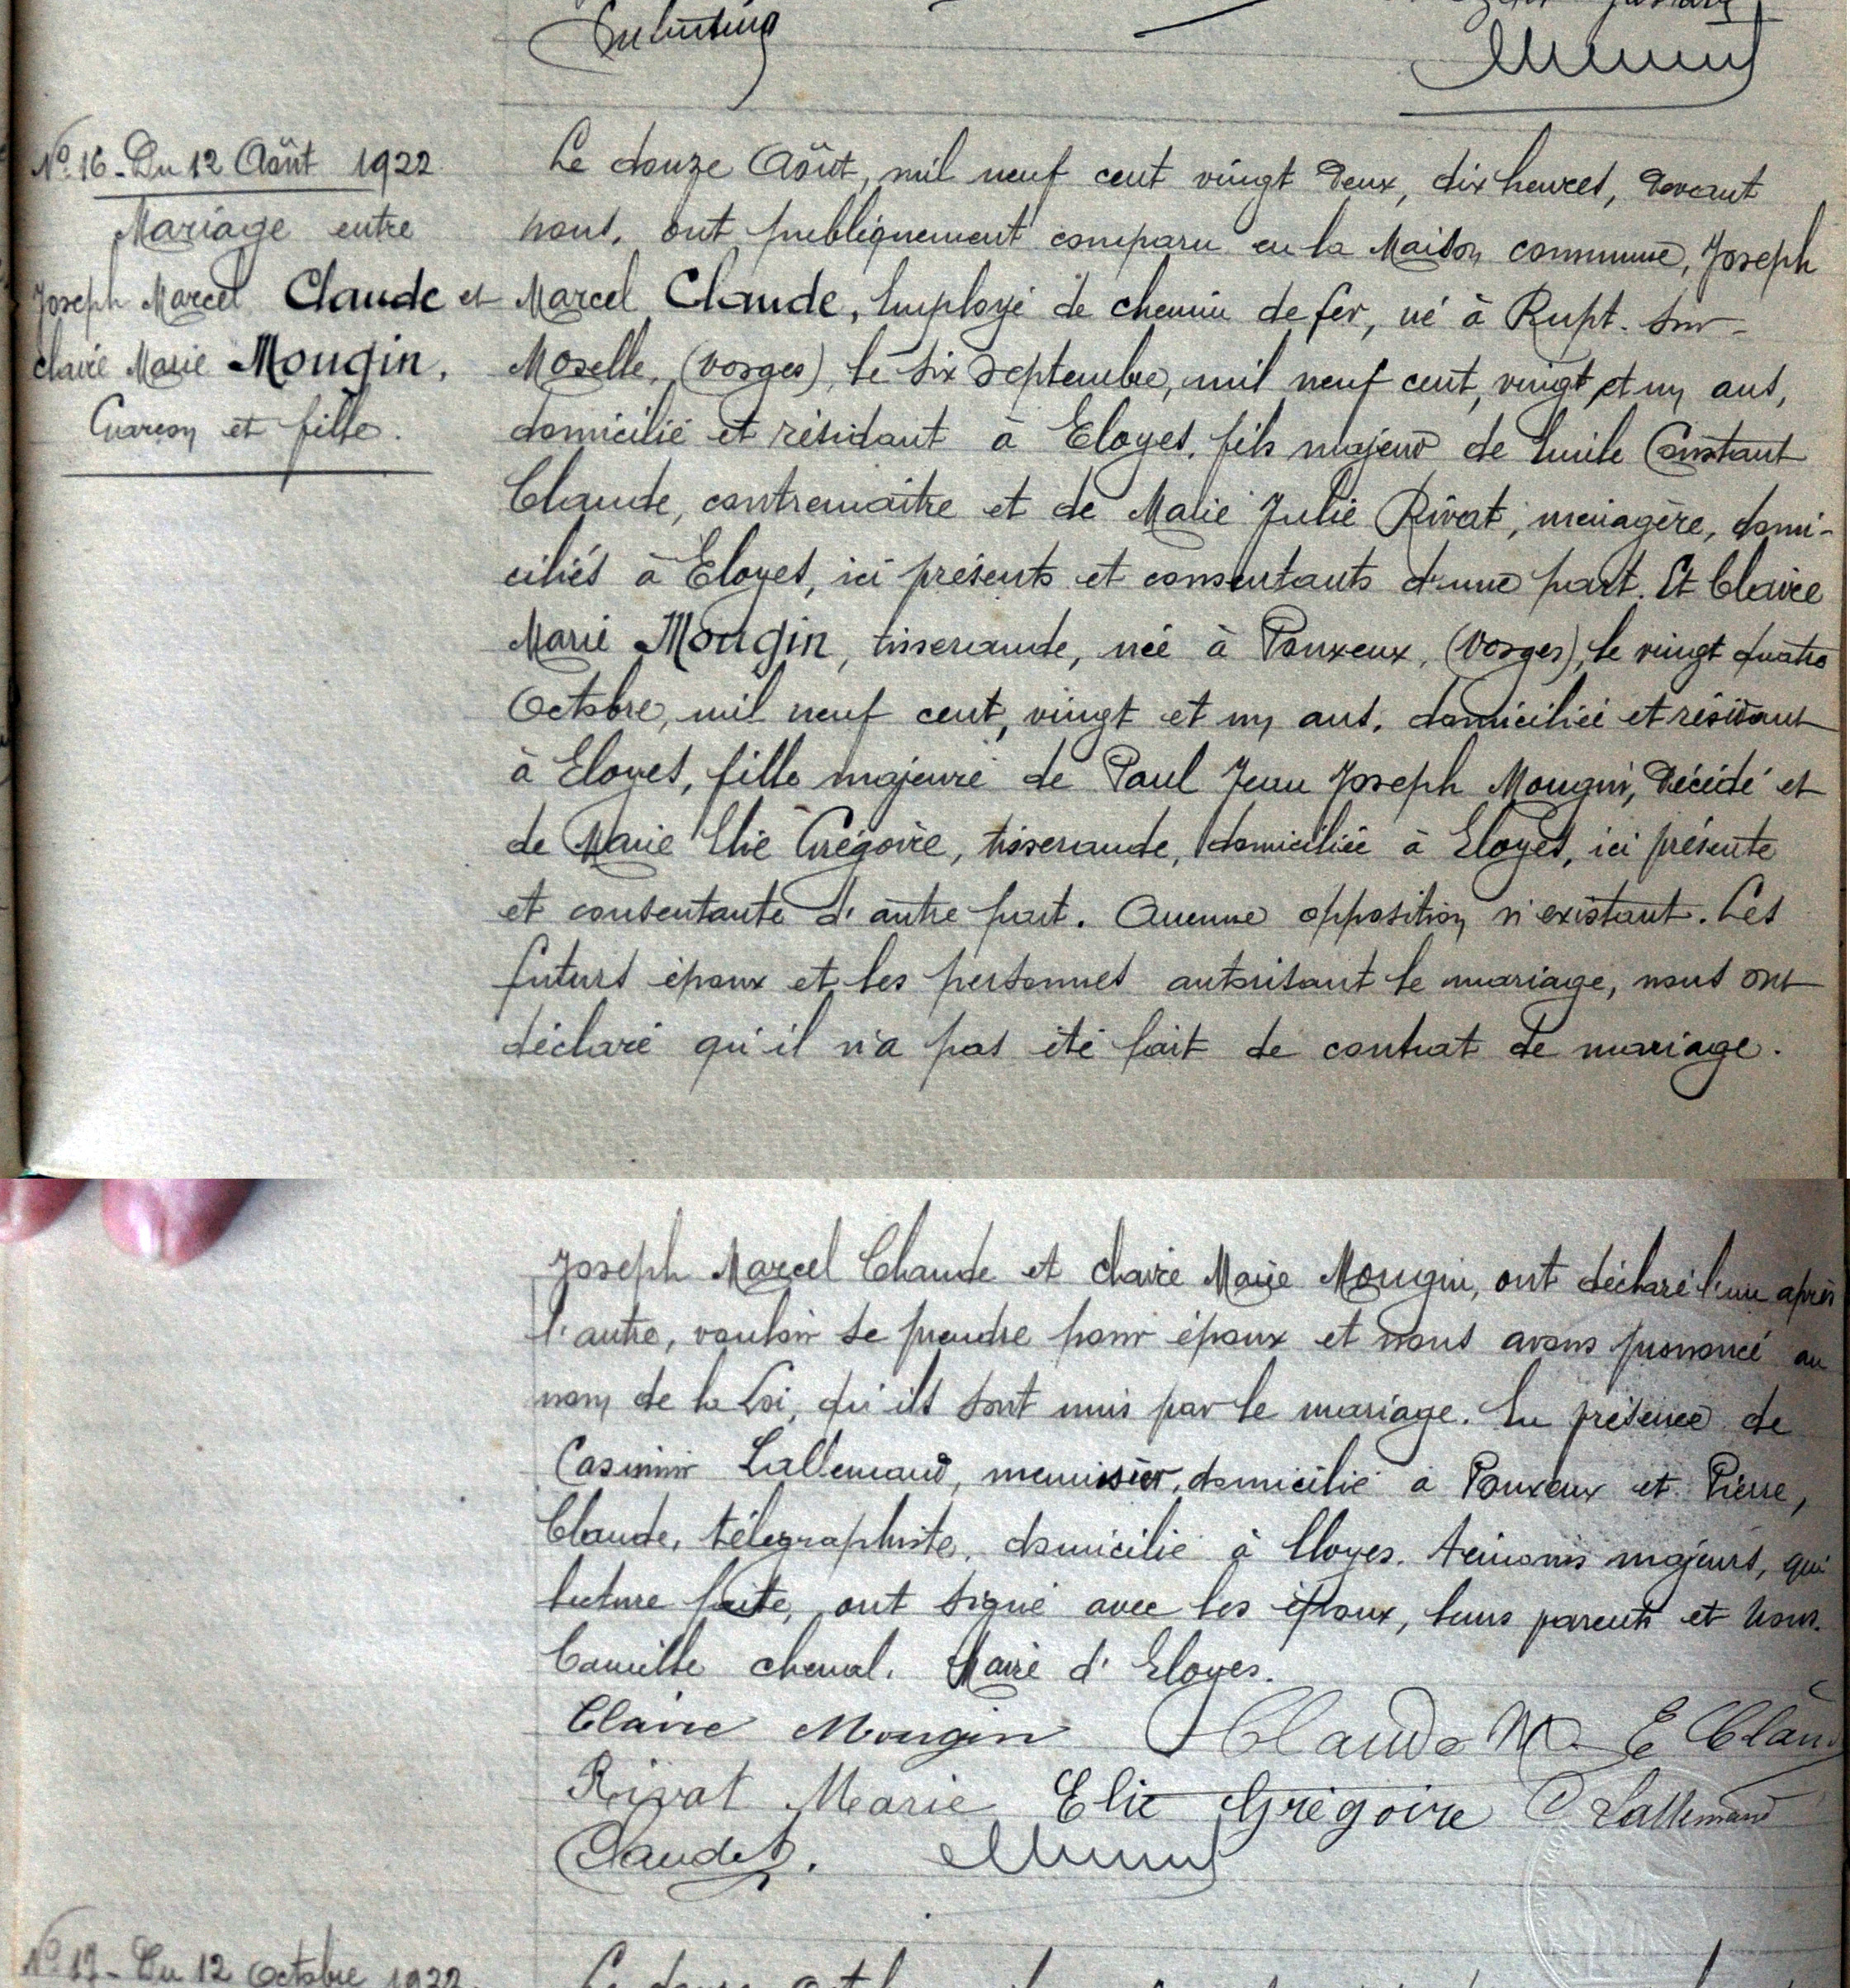 Nº 16 - Du 12 Août 1922
Mariage entre
Joseph Marcel Claude et
Claire Marie Mougin,
Garçon et fille.
Le douze Août, mil neuf cent vingt deux, dix heures, devant
nous, ont publiquement comparu en la Maison commune, Joseph
Marcel Claude, Employé de chemin de fer, né à Rupt-sur-
Moselle, (Vosges), le six Septembre, mil neuf cent, vingt et un ans,
domicilié et résidant à Eloyes, fils majeur de Emile Constant
Claude, contremaître et de Marie Julie Rivat, ménagère, domi-
ciliés à Eloyes, ici présents et consentants d'une part. Et Claire
Marie Mougin, tisserande, née à Pouxeux, (Vosges), le vingt quatre
Octobre, mil neuf cent, vingt et un ans, domiciliée et résidant
à Eloyes, fille majeure de Paul Jean Joseph Mougin, décédé et
de Marie Elie Grégoire, tisserande, domiciliée à Eloyes, ici présente
et consentante d'autre part. Aucune opposition n'existant. Les
futurs époux et les personnes autorisant le mariage, nous ont
déclaré qu'il n'a pas été fait de contrat de mariage.
Joseph Marcel Claude et Claire Marie Mougin, ont déclaré l'un après
l'autre, vouloir se prendre pour époux et nous avons prononcé au
nom de la Loi, qu'ils sont unis par le mariage. En présence de
Casimir Lallemand, menuisier, domicilié à Pouxeux et Pierre,
Claude, télégraphiste, domicilié à Eloyes. témoins majeurs, qui
lecture faite, ont signé avec les époux, leurs parents et Nous.
Camille Cheval. Maire d'Eloyes.
Claire Mougin Claude M E Claude
Rivat Marie Elie Grégoire C Lallemand
Claude P.
Nº 17 - Du 12 Octobre 1922